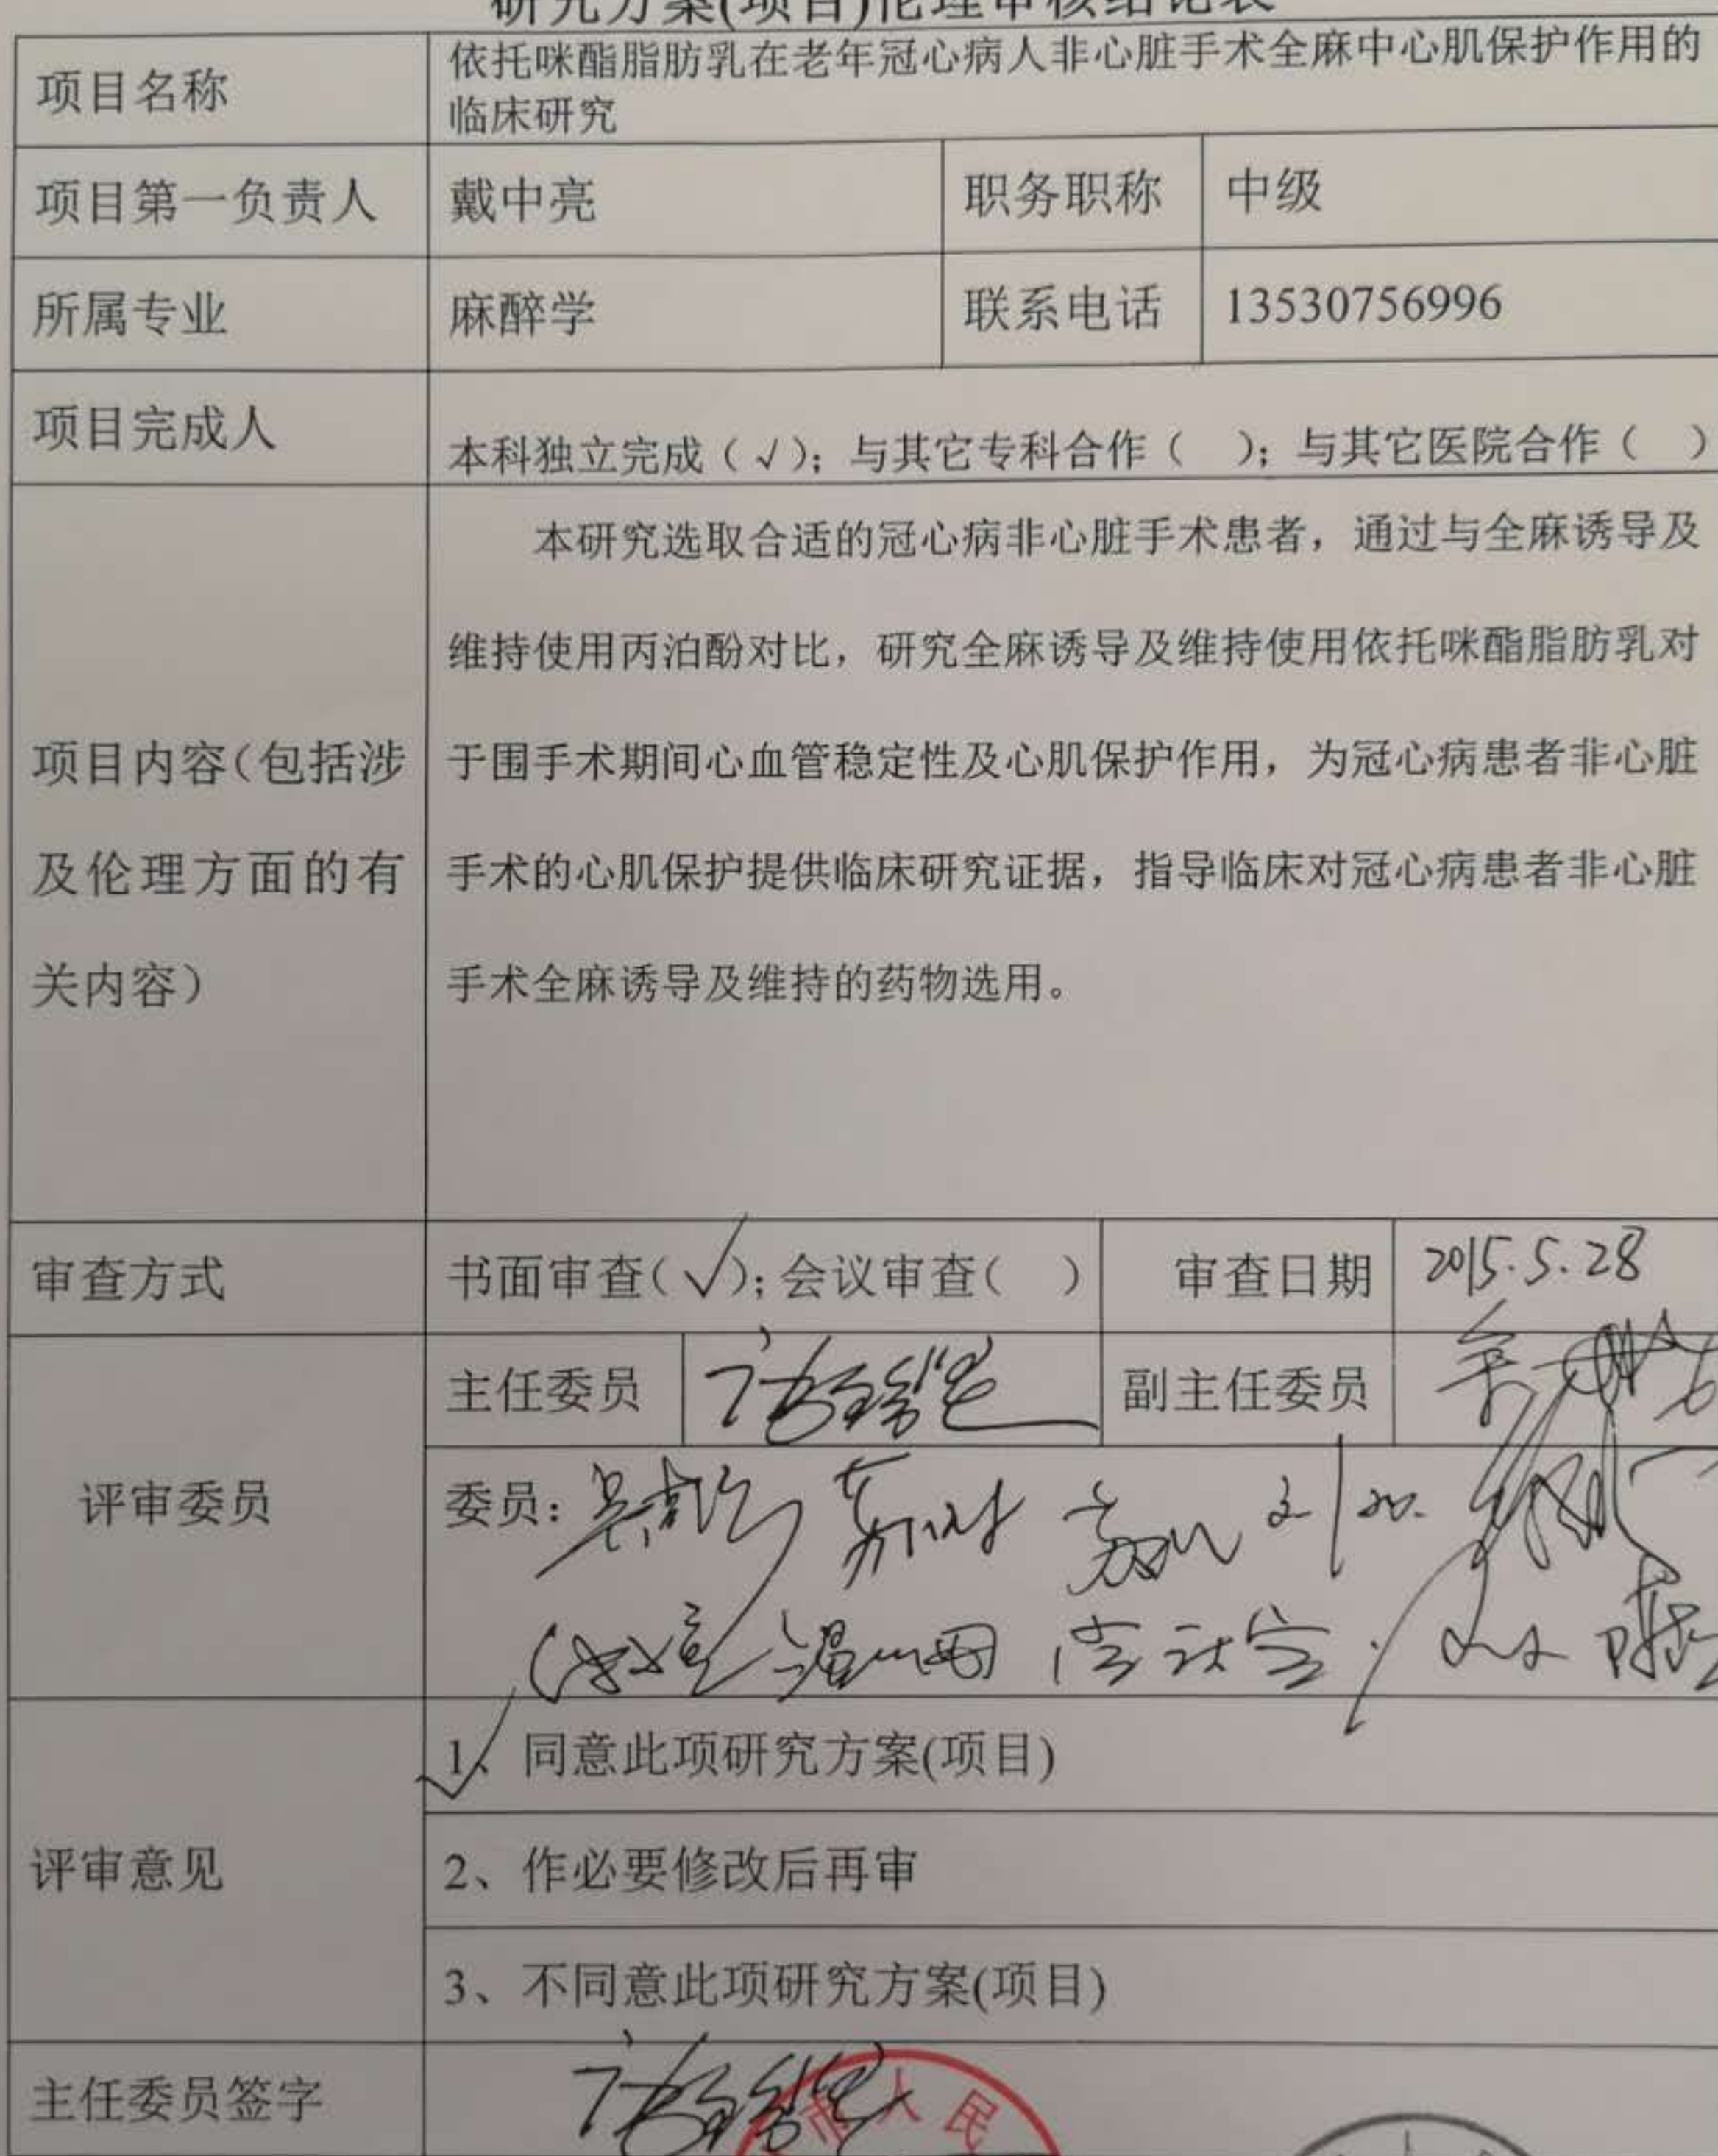 研究方案(项目)伦理审核结论表
项目名称
依托咪酯脂肪乳在老年冠心病人非心脏手术全麻中心肌保护作用的
临床研究
项目第一负责人 戴中亮 职务职称 中级
所属专业 麻醉学 联系电话 13530756996
项目完成人 本科独立完成（√）；与其它专科合作（ ）；与其它医院合作（ ）
项目内容（包括涉
及伦理方面的有
关内容）
本研究选取合适的冠心病非心脏手术患者，通过与全麻诱导及
维持使用丙泊酚对比，研究全麻诱导及维持使用依托咪酯脂肪乳对
于围手术期间心血管稳定性及心肌保护作用，为冠心病患者非心脏
手术的心肌保护提供临床研究证据，指导临床对冠心病患者非心脏
手术全麻诱导及维持的药物选用。
审查方式 书面审查(√);会议审查( ) 审查日期 2015.5.28
评审委员
主任委员 副主任委员
委员:
评审意见
1、同意此项研究方案(项目)
2、作必要修改后再审
3、不同意此项研究方案(项目)
主任委员签字
市人民